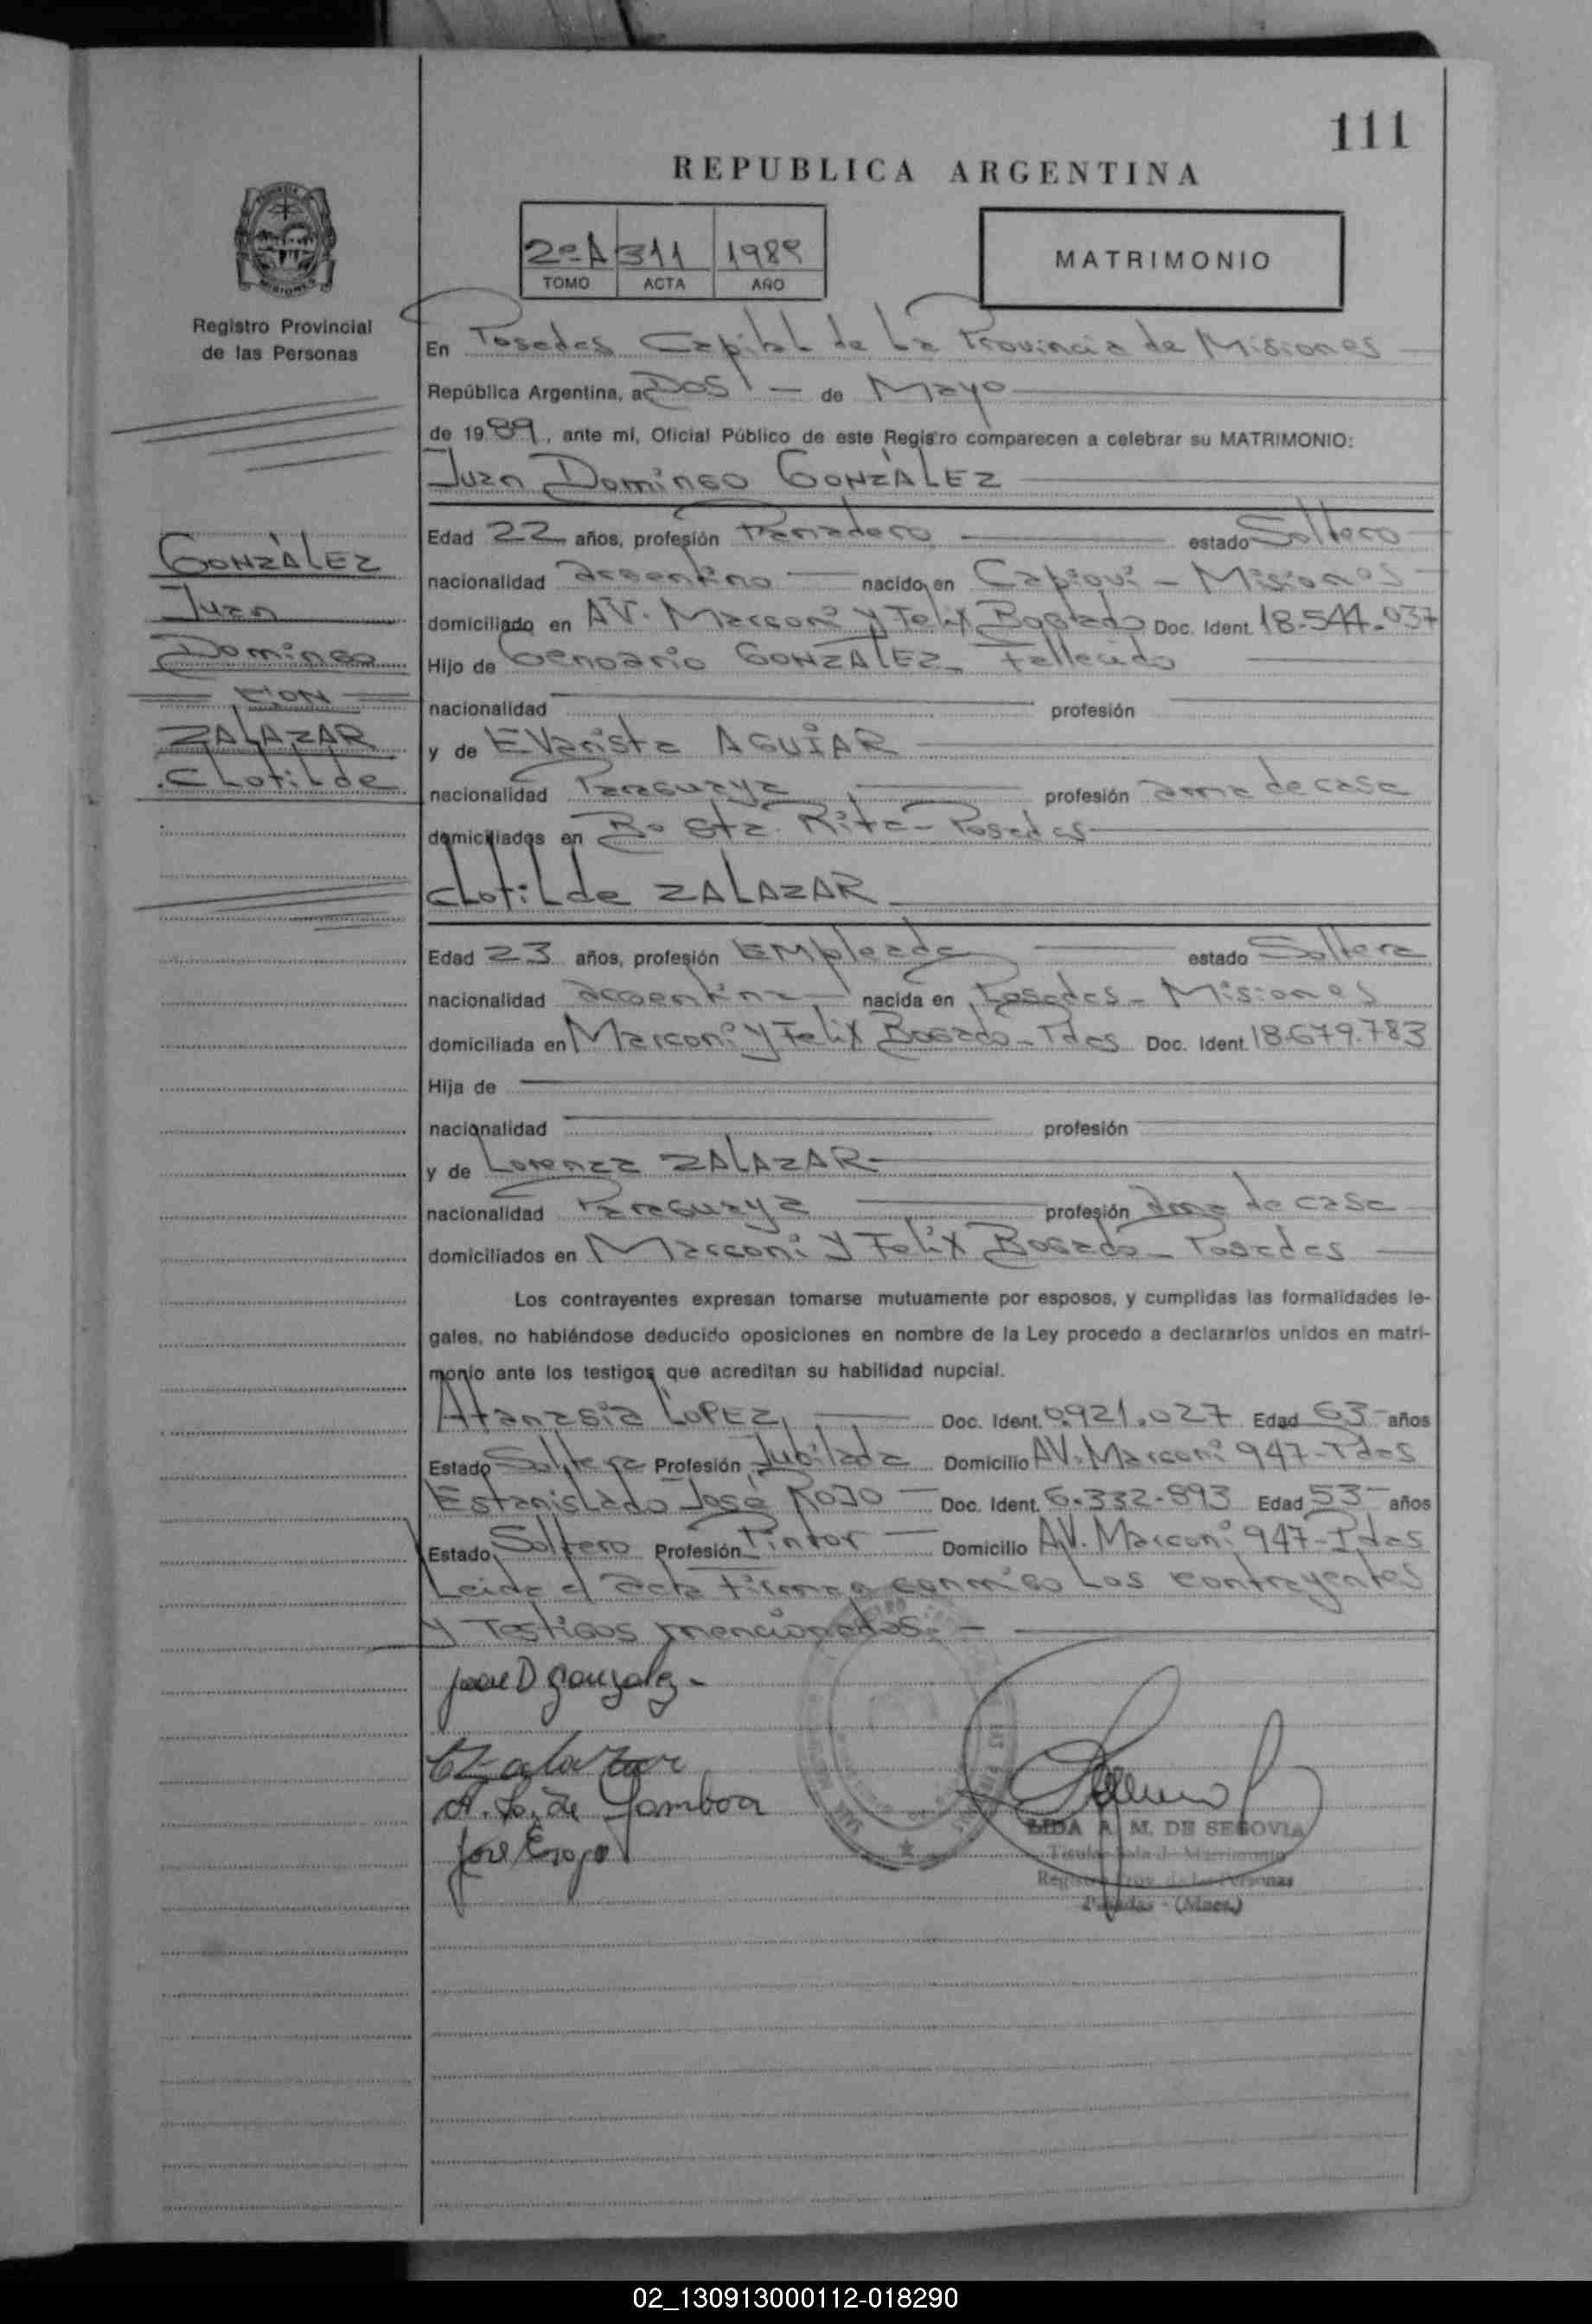 111
REPUBLICA ARGENTINA
2º A 311 1989
TOMO ACTA AÑO
MATRIMONIO
Registro Provincial
de las Personas
En Posadas Capital de La Provincia de Misiones
República Argentina, a Dos de Mayo
de 1989, ante mí, Oficial Público de este Registro comparecen a celebrar su MATRIMONIO:
Juan Domingo GONZÁLEZ
GONZÁLEZ
Juan
Domingo
CON
ZALAZAR
Clotilde
Edad 22 años, profesión Panadero estado Soltero
nacionalidad argentino nacido en Capioví - Misiones
domiciliado en AV. Marconi y Felix Bogado Doc. Ident. 18.544.037
Hijo de Genoario GONZALEZ - Fallecido
nacionalidad profesión
y de Evarista AGUIAR
nacionalidad Paraguaya profesión ama de casa
domiciliados en Bº Sta. Rita - Posadas
Clotilde ZALAZAR
Edad 23 años, profesión Empleada estado Soltera
nacionalidad argentina nacida en Posadas - Misiones
domiciliada en Marconi y Felix Bogado - Pdas Doc. Ident. 18.679.783
Hija de
nacionalidad profesión
y de Lorenza ZALAZAR
nacionalidad Paraguaya profesión ama de casa
domiciliados en Marconi y Felix Bogado - Posadas
Los contrayentes expresan tomarse mutuamente por esposos, y cumplidas las formalidades le-
gales, no habiéndose deducido oposiciones en nombre de la Ley procedo a declararlos unidos en matri-
monio ante los testigos que acreditan su habilidad nupcial.
Atanasia LOPEZ Doc. Ident. 0.921.027 Edad 63 años
Estado Soltera Profesión Jubilada Domicilio AV. Marconi 947 - Pdas
Estanislado José ROJO Doc. Ident. 6.332.893 Edad 53 años
Estado Soltero Profesión Pintor Domicilio AV. Marconi 947 - Pdas
Leida el acta Firman conmigo Los contrayentes
y Testigos mencionados. -
Juan D Gonzalez -
C Zalazar
A. Lo. de Gamboa
José E rojo
LIDA A. M. DE SEGOVIA
Titular Sala de Matrimonio
Registro Prov. de las Personas
Posadas - (Mnes.)
02_130913000112-018290